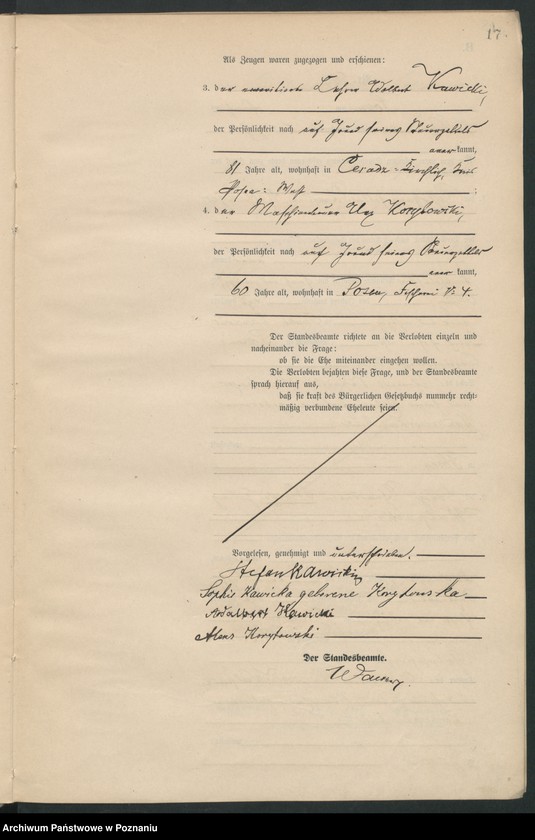 17.
Als Zeugen waren zugezogen und erschienen:
3. der emeritierte Lehrer Adalbert Kawicki,
der Persönlichkeit nach auf Grund seines
kannt,
81 Jahre alt, wohnhaft in Ceradz-Kirchlich, Kreis
Posen-West ;
4. der Maschinenbauer Korytowski,
der Persönlichkeit nach auf Grund seines
kannt,
60 Jahre alt, wohnhaft in Posen, 4.
Der Standesbeamte richtete an die Verlobten einzeln und
nacheinander die Frage:
ob sie die Ehe miteinander eingehen wollen.
Die Verlobten bejahten diese Frage, und der Standesbeamte
sprach hierauf aus,
daß sie kraft des Bürgerlichen Gesetzbuchs nunmehr recht-
mäßig verbundene Eheleute seien.
Vorgelesen, genehmigt und unterschrieben.
Stefan Kawicki
Sophie Kawicka geborene Korytowska
Adalbert Kawicki
Korytowski
Der Standesbeamte.
Archiwum Państwowe w Poznaniu